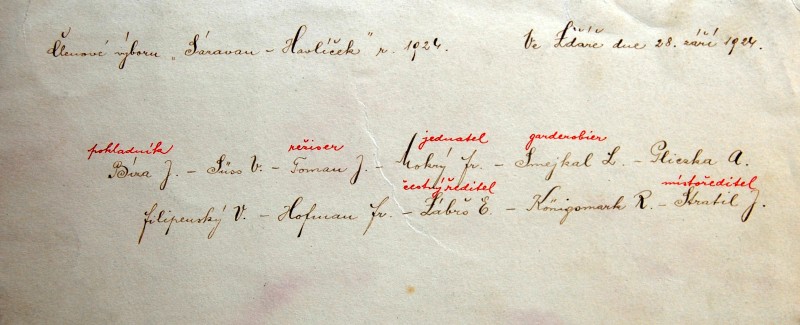 Členové výboru „Sáravan – Havlíček" r. 1924. Ve Žďáře dne 28. září 1924.
pokladník režiser jednatel garderobier
Bíra J. – Süss V. – Toman J. – Mokrý Fr. – Smejkal L. – Pliczka A.
čestný ředitel místořediteľ
Filipenský V. – Hofman Fr. – Lábrš E. – Königsmark R. – Stratil J.